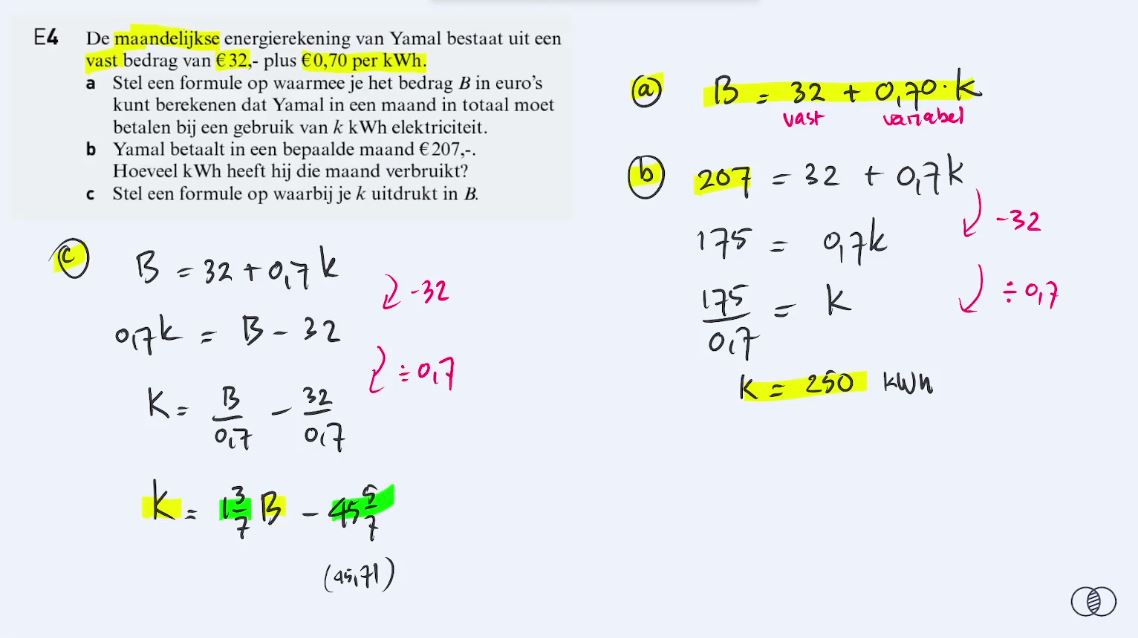 E4 De maandelijkse energierekening van Yamal bestaat uit een
vast bedrag van € 32,- plus € 0,70 per kWh.
a Stel een formule op waarmee je het bedrag B in euro's
kunt berekenen dat Yamal in een maand in totaal moet
betalen bij een gebruik van k kWh elektriciteit.
b Yamal betaalt in een bepaalde maand € 207,-.
Hoeveel kWh heeft hij die maand verbruikt?
c Stel een formule op waarbij je k uitdrukt in B.
a B = 32 + 0,70 · k
vast variabel
b 207 = 32 + 0,7k
-32
175 = 0,7k
÷ 0,7
175/0,7 = k
k = 250 kWh
c B = 32 + 0,7k
-32
0,7k = B - 32
÷ 0,7
k = B/0,7 - 32/0,7
k = 1 3/7 B - 45 5/7
(45,71)